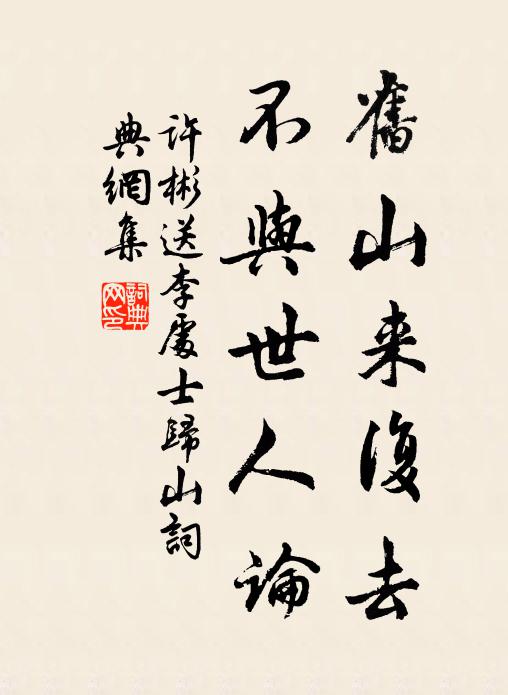 舊山来復去
不與世人論
許彬送李處士歸山詞
典網集
詞典网印